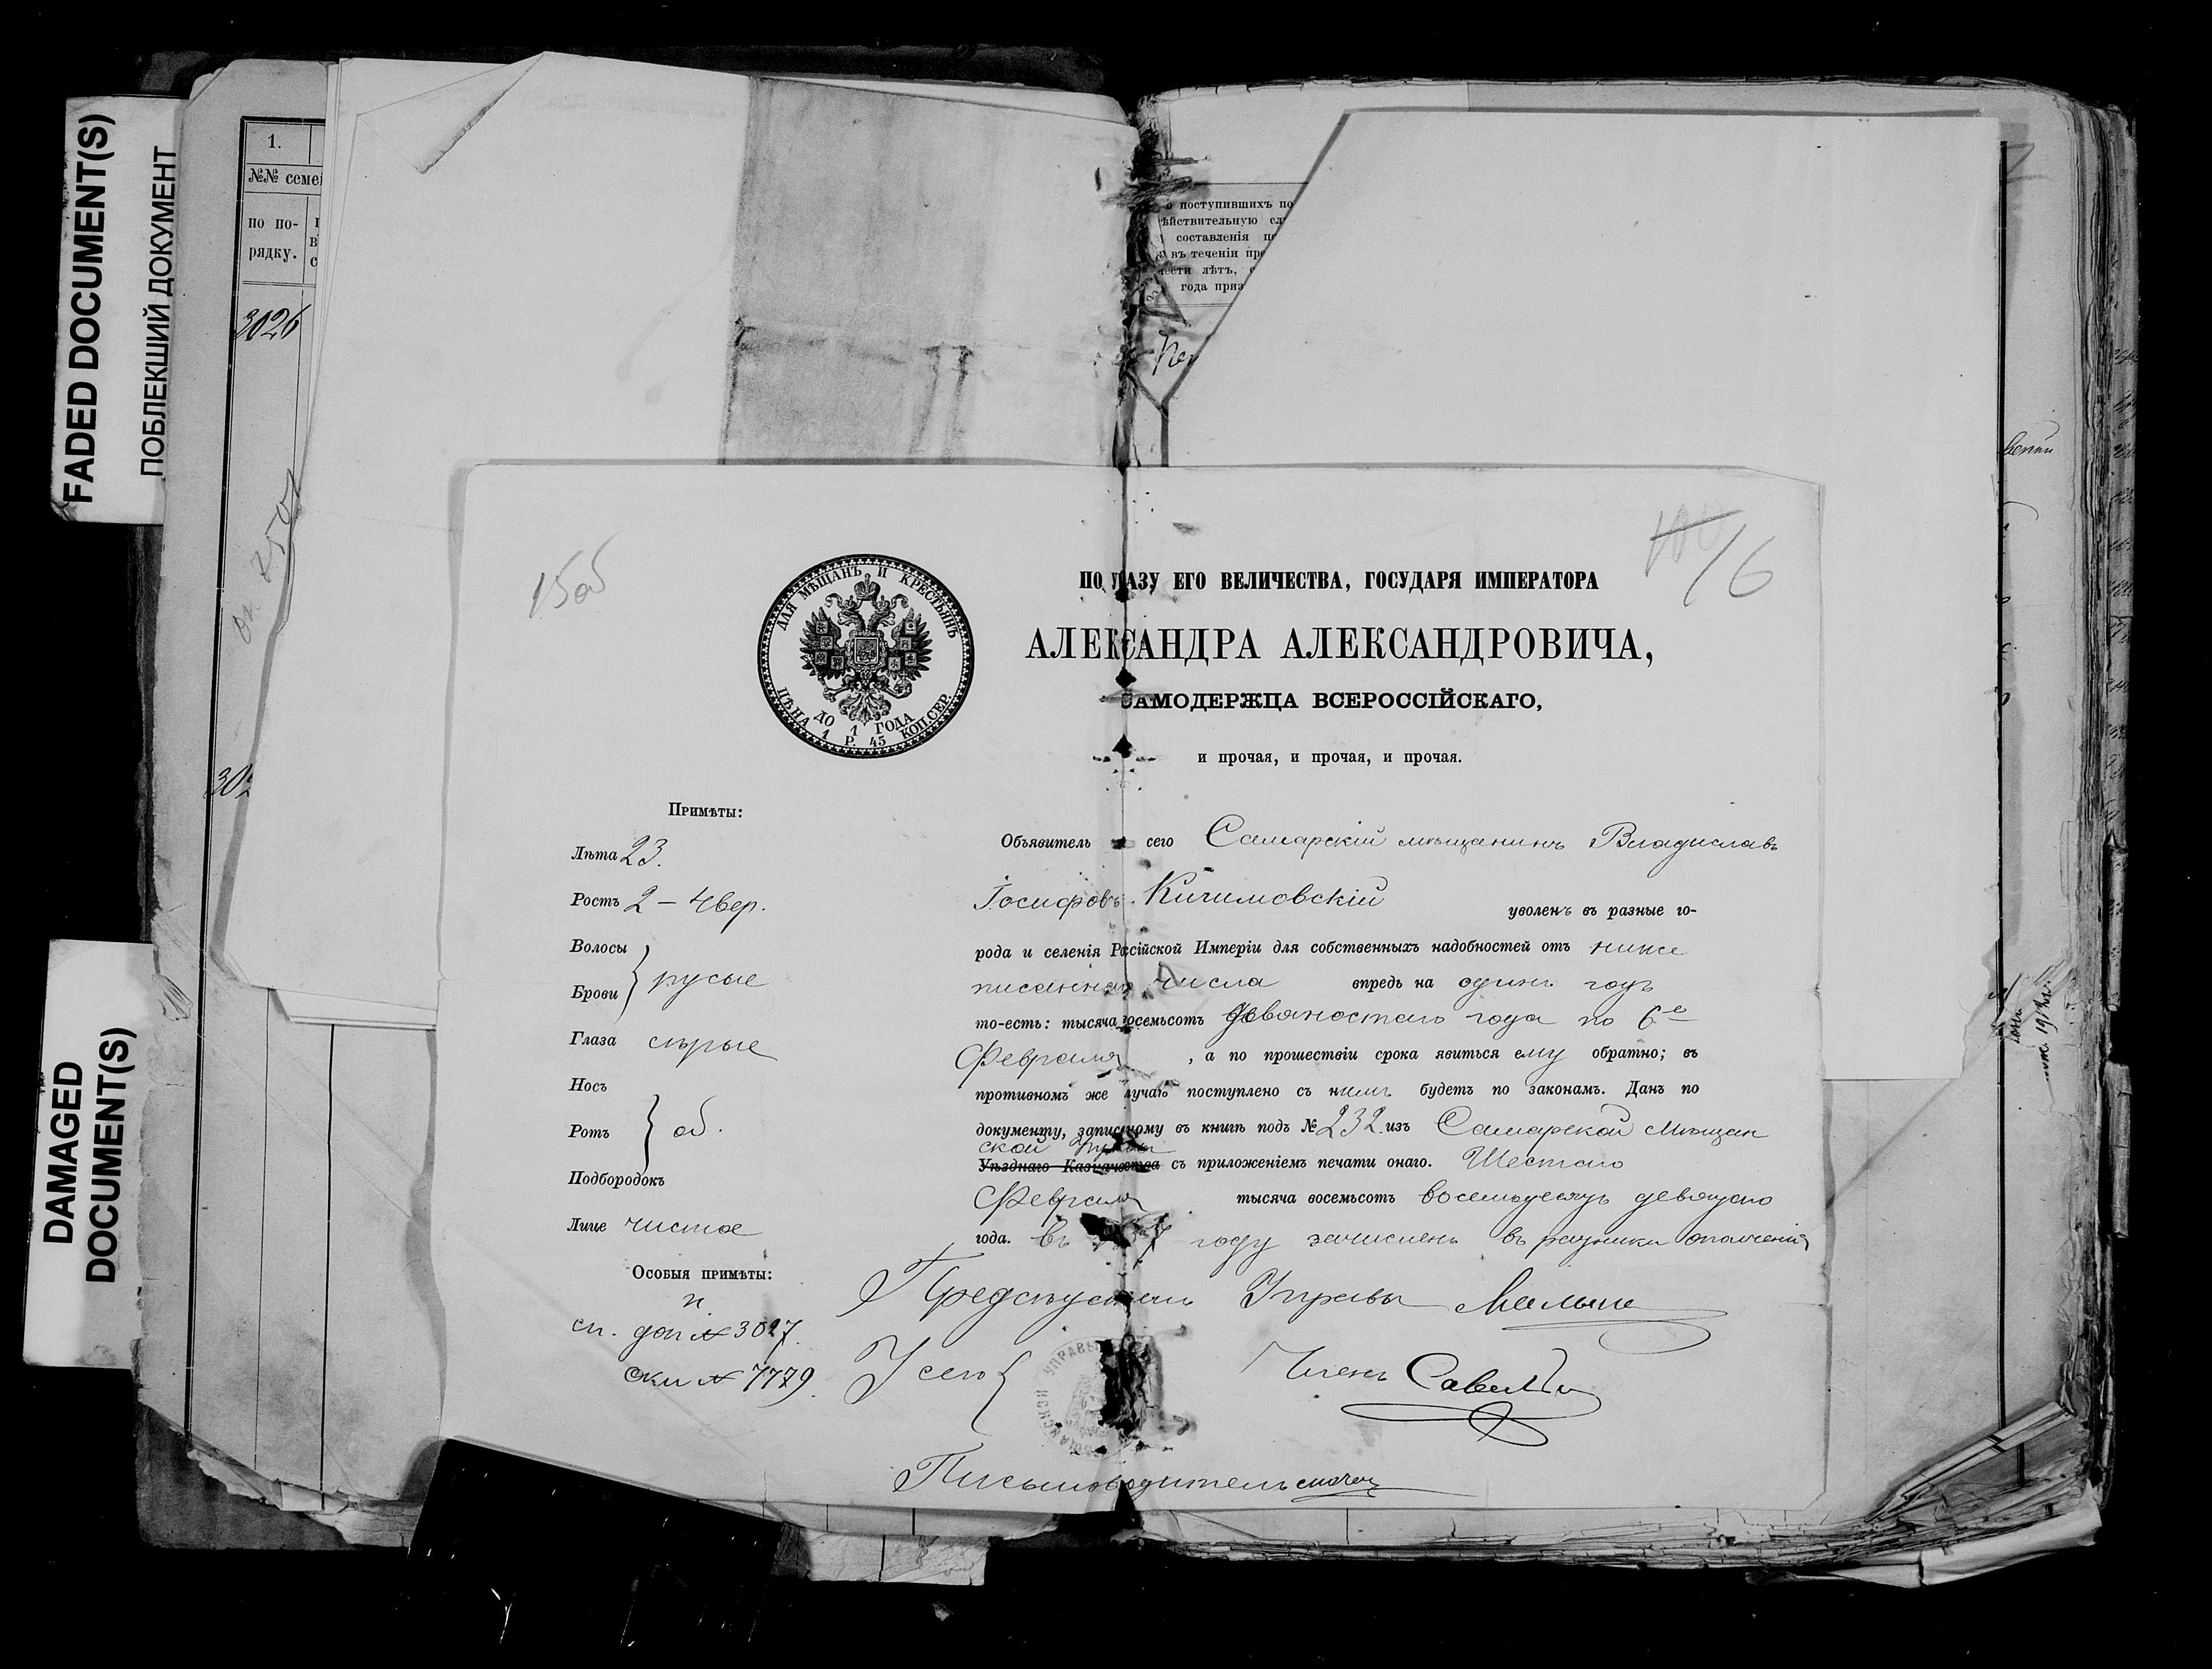 FADED DOCUMENT(S)
ПОБЛЕКШИЙ ДОКУМЕНТ
DAMAGED
DOCUMENT(S)
1.
№№ семе
по по-
рядку.
3026
о поступившихъ по
ѣйствительную сл
составленія
въ теченіи пр
ести лѣтъ,
года приз
15об
16
ДЛЯ МѢЩАНЪ И КРЕСТЬЯНЪ
ДО 1 ГОДА
ЦѢНА 1 Р. 45 КОП. СЕР.
ПО У АЗУ ЕГО ВЕЛИЧЕСТВА, ГОСУДАРЯ ИМПЕРАТОРА
АЛЕКСАНДРА АЛЕКСАНДРОВИЧА,
САМОДЕРЖЦА ВСЕРОССІЙСКАГО,
и прочая, и прочая, и прочая.
Примѣты:
Лѣта 23.
Ростъ 2 – 4 вер.
Волосы
Брови } русые
Глаза сѣрые
Носъ
Ротъ } об.
Подбородокъ
Лице чистое
Особыя примѣты:
н.
сп. доп № 3027.
ски № 7779.
Объявитель сего Самарскій мѣщанинъ Владиславъ
Іосифовъ Кичимовскій уволенъ въ разные го-
рода и селенія Расійской Имперіи для собственныхъ надобностей отъ ниже
писаннаго числа впредь на одинъ годъ
то-есть: тысяча восемьсотъ девяностаго года по 6е
Февраля, а по прошествіи срока явиться ему обратно; въ
противномъ же лучаѣ поступлено съ нимъ будетъ по законамъ. Данъ по
документу, записному въ книгѣ подъ № 232 изъ Самарской Мѣщан
ской Управы
Уѣзднаго Казначества съ приложеніемъ печати онаго. Шестаго
Февраля тысяча восемьсотъ восемьдесятъ девятаго
года. въ 7 году зачисленъ въ ратники ополченія
Предсѣдатель Управы
У сего {
Членъ
УПРАВЫ
Письмоводитель